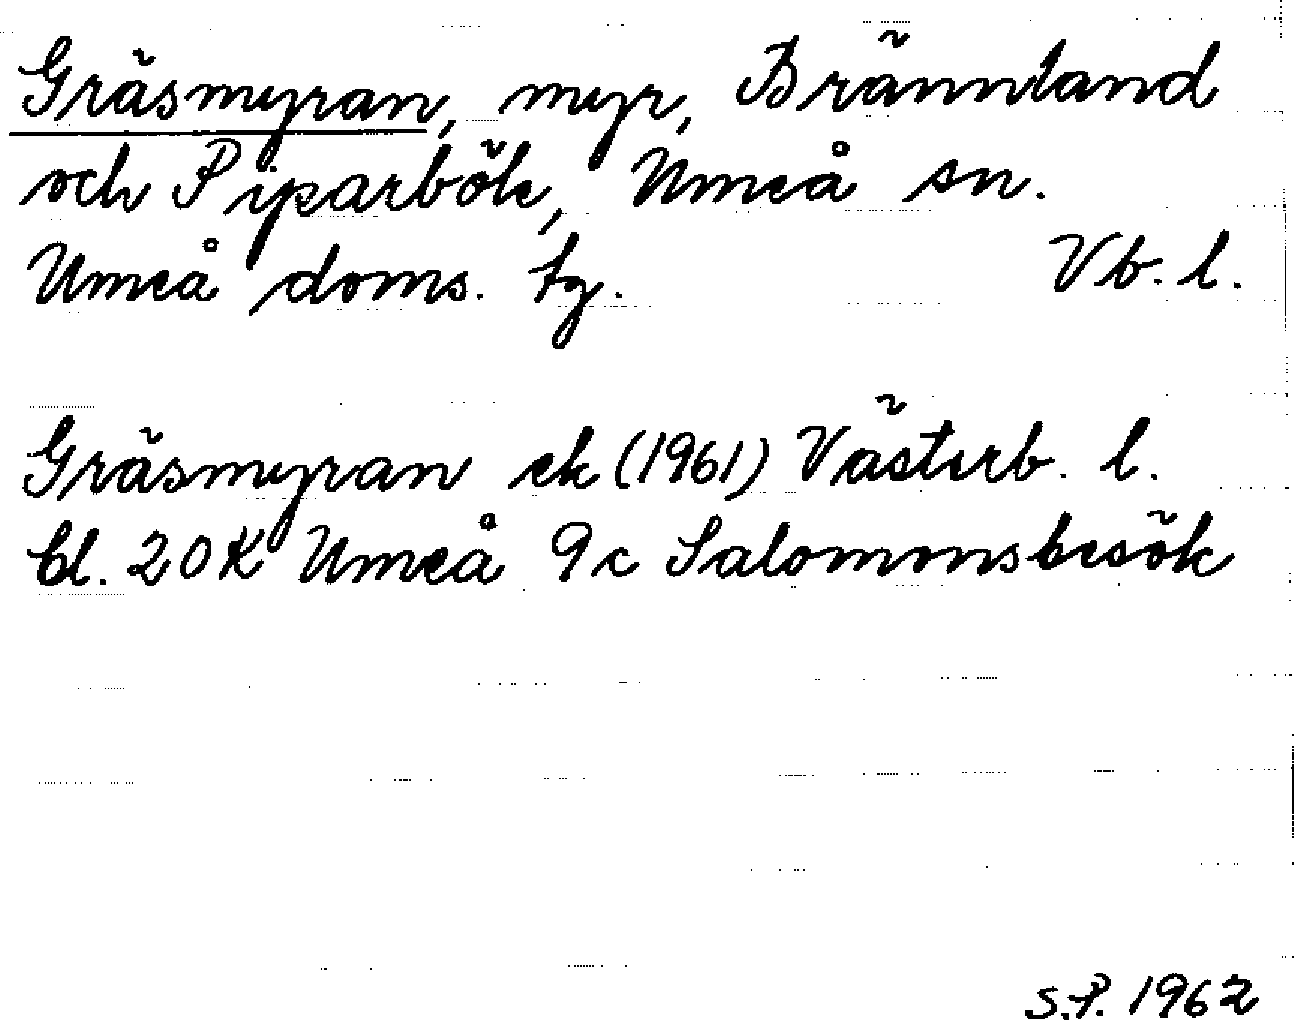 Gräsmyran, myr, Brännland
och Piparböle, Umeå sn.
Umeå doms. tg. Vb. l.
Gräsmyran ek (1961) Västerb. l.
bl. 20K Umeå 9c Salomonsbesök
S.P. 1962